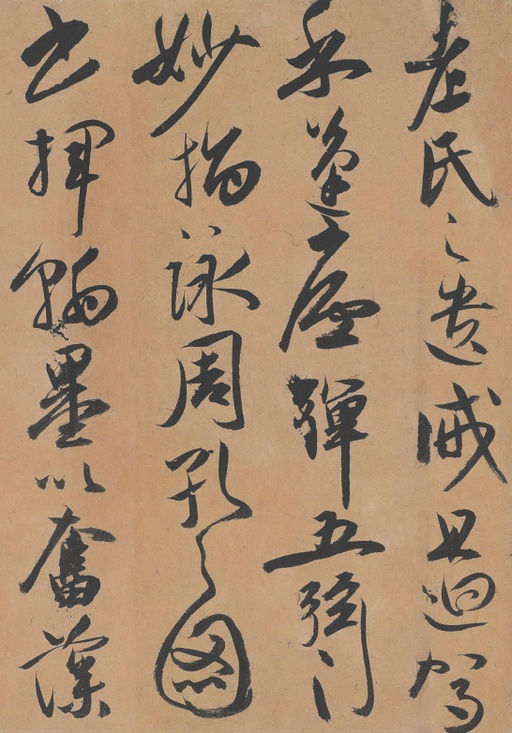 老氏之遺誡且迴駕
乎蓬廬彈五弦
妙指詠周孔之圖
書揮翰墨以奮藻